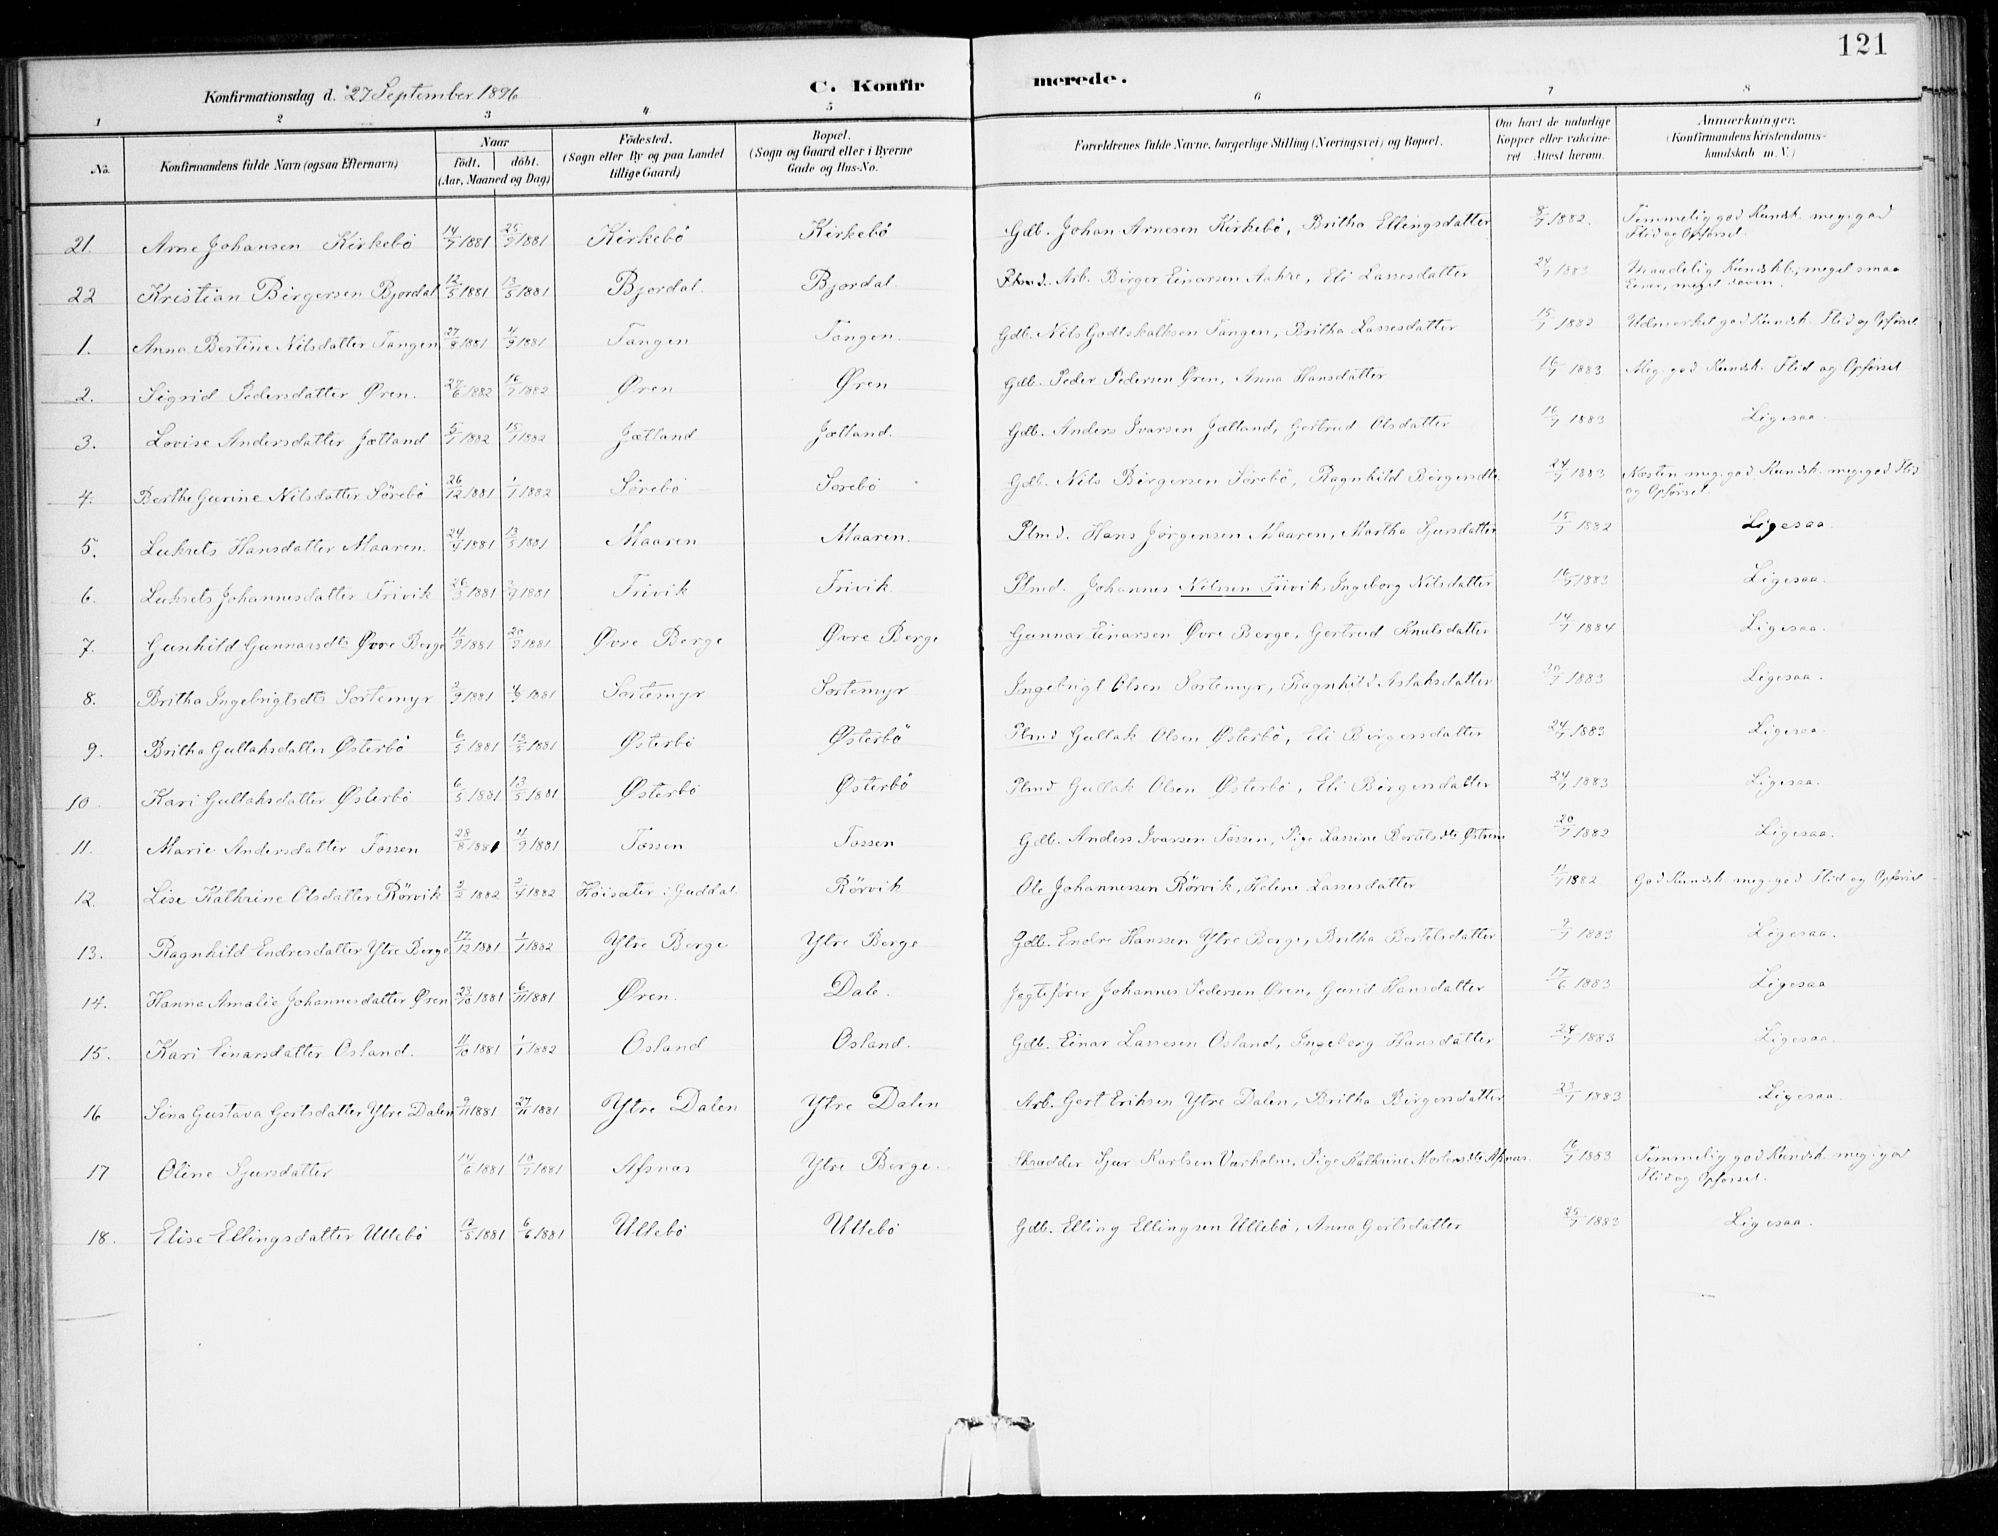 121
Konfirmationsdag d. 27 September 1896 C. Konfirmerede.
1 2 3 4 5 6 7 8
No. Konfirmandens fulde Navn (ogsaa Efternavn) Naar födt. döbt. (Aar, Maaned og Dag) Födested. (Sogn eller By og paa Landet tillige Gaard) Bopæl. (Sogn og Gaard eller i Byerne Gade og Hus-No. Forældrenes fulde Navne, borgerlige Stilling (Næringsvei) og Bopæl. Om havt de naturlige Kopper eller vakcineret Attest herom. Anmærkninger. (Konfirmandens Kristendomskundskab m. V.)
21. Arne Johansen Kirkebö 14/7 1881 25/9 1881 Kirkebö Kirkebö Gdb. Johan Arnesen Kirkebö, Britha Ellingsdatter 8/7 1882. Temmelig god Kundsk. meg. god Flid og Opførsel.
22 Kristian Birgersen Bjordal 12/5 1881 13/5 1881 Bjordal. Bjordal. Plmd. Arb. Birger Einarsen Aahre, Eli Lassesdatter 24/7 1883 Maadelig Kundskb., meget smaa Evner, meget doven.
1. Anna Bertine Nilsdatter Tangen 27/8 1881 4/9 1881 Tangen Tangen. Gdb. Nils Godtskalksen Tangen, Britha Lassesdatter 15/7 1882 Udmerket god Kundsk. Flid og Opførsel
2. Sigrid Pedersdatter Øren. 24/6 1882 16/7 1882 Øren Øren Gdb. Peder Pedersen Øren, Anna Hansdatter 16/7 1883 Meg. god Kundsk. Flid og Opførsel
3. Lovise Andersdatter Jætland 5/1 1882 15/1 1882 Jætland Jætland. Gdb. Anders Ivarsen Jætland, Gertrud Olsdatter 16/7 1883 Ligesaa.
4. Berthe Gurine Nilsdatter Sörebö 26/12 1881 1/1 1882 Sörebö Sörebö Gdb. Nils Börgersen Sörebö, Ragnhild Börgersdtr. 24/7 1883 Næsten meg. god Kundsk. meg. god Flid og Opførsel.
5. Lukrets Hansdatter Maaren. 24/4 1881 13/5 1881 Maaren Maaren. Plmd. Hans Jörgensen Maaren, Martha Sjursdatter 15/7 1882 Ligesaa.
6. Lukrets Johannesdatter Trivik 26/8 1881 1881 Trivik Trivik. Plmd. Johannes Nilssen Trivik, Ingeborg Nilsdatter 16/7 1883 Ligesaa.
7. Gunhild Gunnarsdtr Øvre Berge 11/9 1881 20/9 1881 Øvre Berge Øvre Berge Gunnar Einarsen Øvre Berge, Gertrud Knutsdatter 14/7 1884 Ligesaa.
8. Britha Ingebrigtsdtr Sortemyr 2/9 1881 4/9 1881 Sortemyr Sortemyr Ingebrigt Olsen Sortemyr, Ragnhild Aslaksdatter 20/7 1883 Ligesaa.
9. Britha Gullaksdatter Østerbö 6/5 1881 13/5 1881 Østerbö Østerbö Plmd Gullak Olsen Østerbö, Eli Birgersdatter 24/7 1883 Ligesaa.
10. Kari Gullaksdatter Østerbö 6/5 1881 13/5 1881 Østerbö Østerbö Plmd Gullak Olsen Østerbö, Eli Birgersdatter 24/7 1883 Ligesaa.
11. Marie Andersdatter Tossen 28/8 1881 4/9 1881 Tossen Tossen Gdb. Anders Ivarsen Tossen, Pige Lassine Bertelsdtr 20/7 1882 Ligesaa.
12. Lise Kathrine Olsdatter Rörvik 2/3 1882 2/4 1882 Höisæter i Guddal. Rörvik Ole Johannessen Rörvik, Helene Lassesdatter 11/7 1882 God Kundsk. meg. god Flid og Opførsel
13. Ragnhild Endresdatter Ytre Berge 17/12 1881 1/1 1882 Ytre Berge Ytre Berge Gdb. Endre Hanssen Ytre Berge, Britha Bertelsdatter 9/7 1883 Ligesaa.
14. Hanna Amalie Johannesdatter Øren 23/10 1881 6/11 1881 Øren. Dale. Jagtefører Johannes Pedersen Øren, Gurid Hansdatter 17/6 1883 Ligesaa
15. Kari Einarsdatter Osland. 11/10 1881 1/1 1882 Osland Osland. Gdb. Einar Lassesen Osland, Ingeborg Hansdatter 24/7 1883 Ligesaa.
16 Sina Gustava Gertsdatter Ytre Dalen 9/11 1881 27/11 1881 Ytre Dalen Ytre Dalen Arb. Gert Eriksen Ytre Dalen, Britha Börgersdatter 23/7 1883 Ligesaa.
17 Oline Sjursdatter 14/6 1881 10/7 1881 Afsnæs Ytre Berge. Skrædder Sjur Karlsen Varholm, Pige Kathrine Mortensdtr Afsnæs. 16/7 1883 Temmelig god Kundsk. meg. god Flid og Opførsel.
18. Elise Ellingsdatter Ullebö 17/5 1881 6/6 1881 Ullebö Ullebö Gdb. Elling Ellingsen Ullebö, Anna Gertsdatter 25/7 1883 Ligesaa.